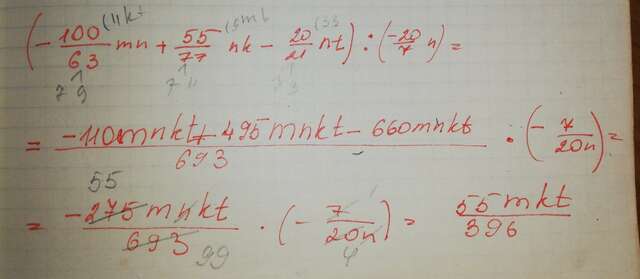 (11kt (9mt (33
(-100/63 mn + 55/77 nk - 20/21 nt) : (-20/7 n) =
7 9 7 11 7 3
= -110mnkt + 495mnkt - 660mnkt / 693 · (-7/20n) =
55
= -275mnkt / 693 · (-7/20n) = 55mkt/396
99 4